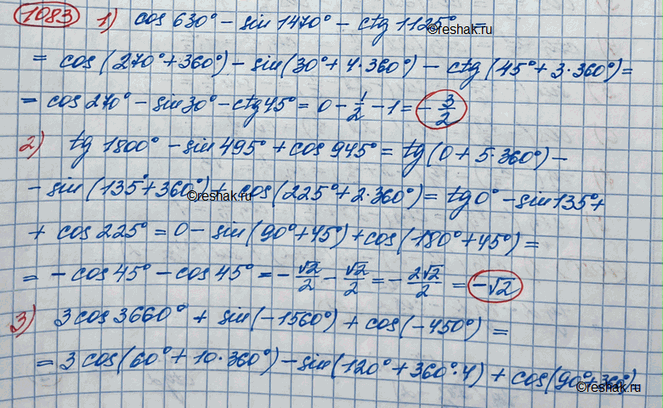 1083 1) cos 630° - sin 1470° - ctg 1125° =
= cos(270° + 360°) - sin(30° + 4·360°) - ctg(45° + 3·360°) =
= cos 270° - sin 30° - ctg 45° = 0 - 1/2 - 1 = - 3/2
2) tg 1800° - sin 495° + cos 945° = tg(0 + 5·360°) -
- sin(135° + 360°) + cos(225° + 2·360°) = tg 0° - sin 135° +
+ cos 225° = 0 - sin(90° + 45°) + cos(180° + 45°) =
= - cos 45° - cos 45° = - √2/2 - √2/2 = - 2√2/2 = -√2
3) 3 cos 3660° + sin(-1560°) + cos(-450°) =
= 3 cos(60° + 10·360°) - sin(120° + 360°·4) + cos(90° + 360°)
©reshak.ru
©reshak.ru
©reshak.ru